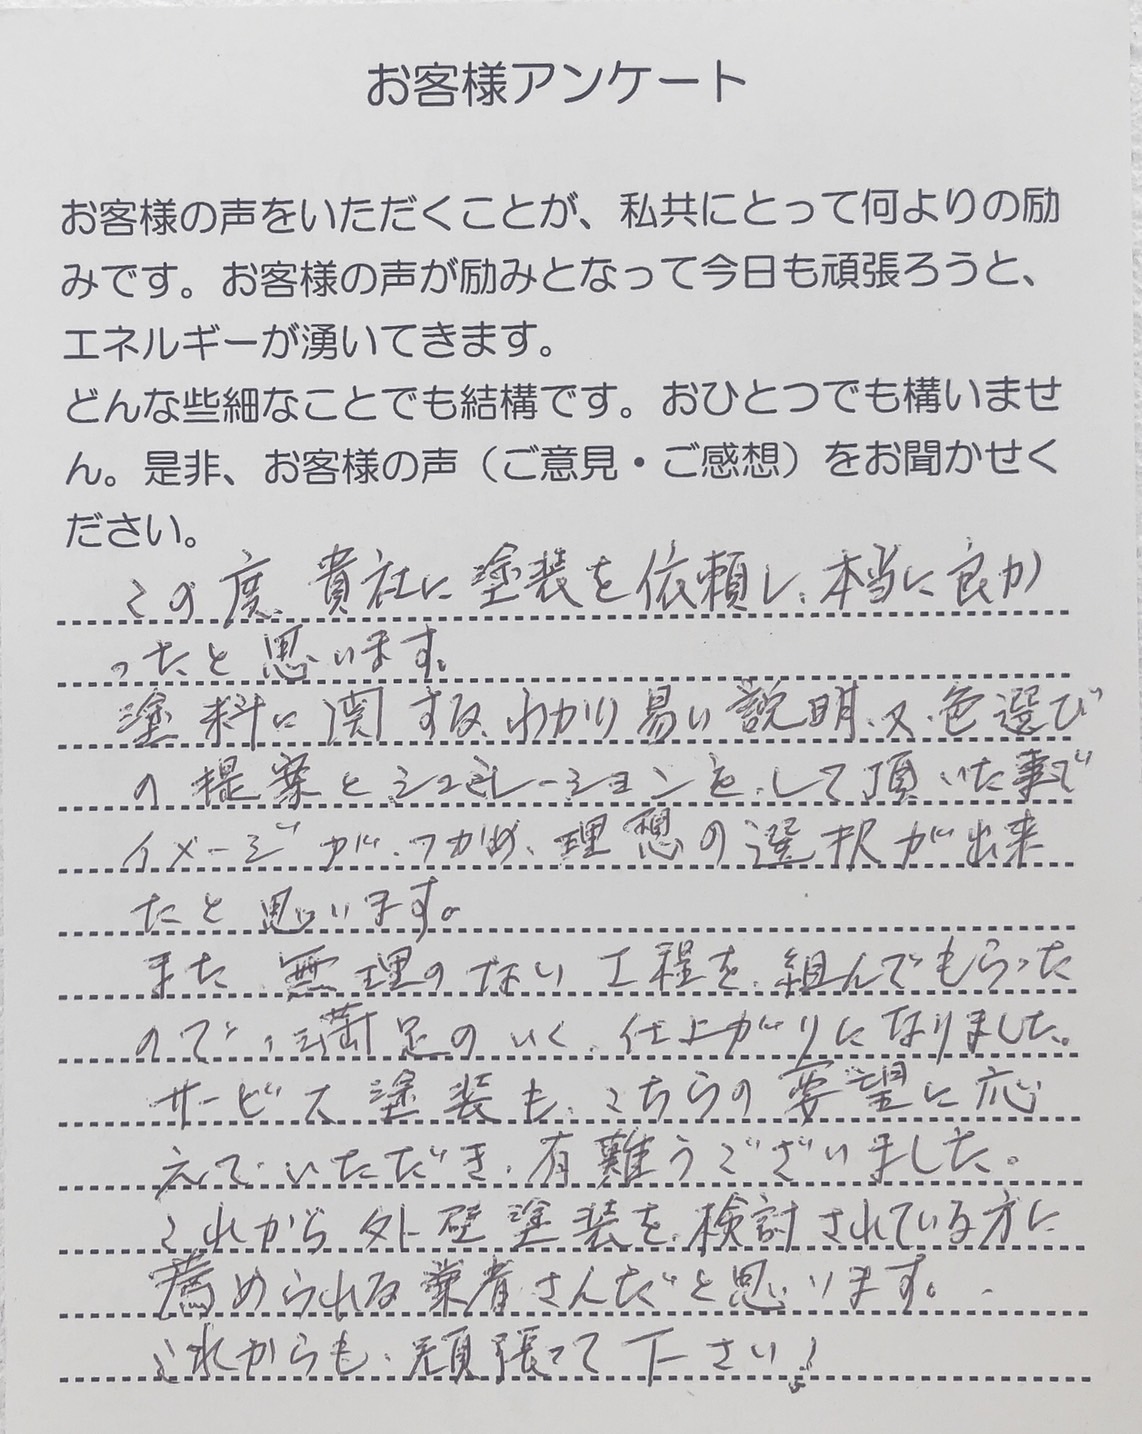 お客様アンケート
お客様の声をいただくことが、私共にとって何よりの励
みです。お客様の声が励みとなって今日も頑張ろうと、
エネルギーが湧いてきます。
どんな些細なことでも結構です。おひとつでも構いませ
ん。是非、お客様の声（ご意見・ご感想）をお聞かせく
ださい。
この度、貴社に塗装を依頼し、本当に良か
ったと思います。
塗料に関する、わかり易い説明、又、色選び
の提案とシュミレーションを、して頂いた事で
イメージが、つかめ、理想の選択が出来
たと思います。
また、無理のない工程を、組んでもらった
ので、満足のいく、仕上がりになりました。
サービス塗装も、こちらの要望に応
えて、いただき、有難うございました。
これから外壁塗装を、検討されている方に
薦められる業者さんだと思います。
これからも、頑張って下さい！